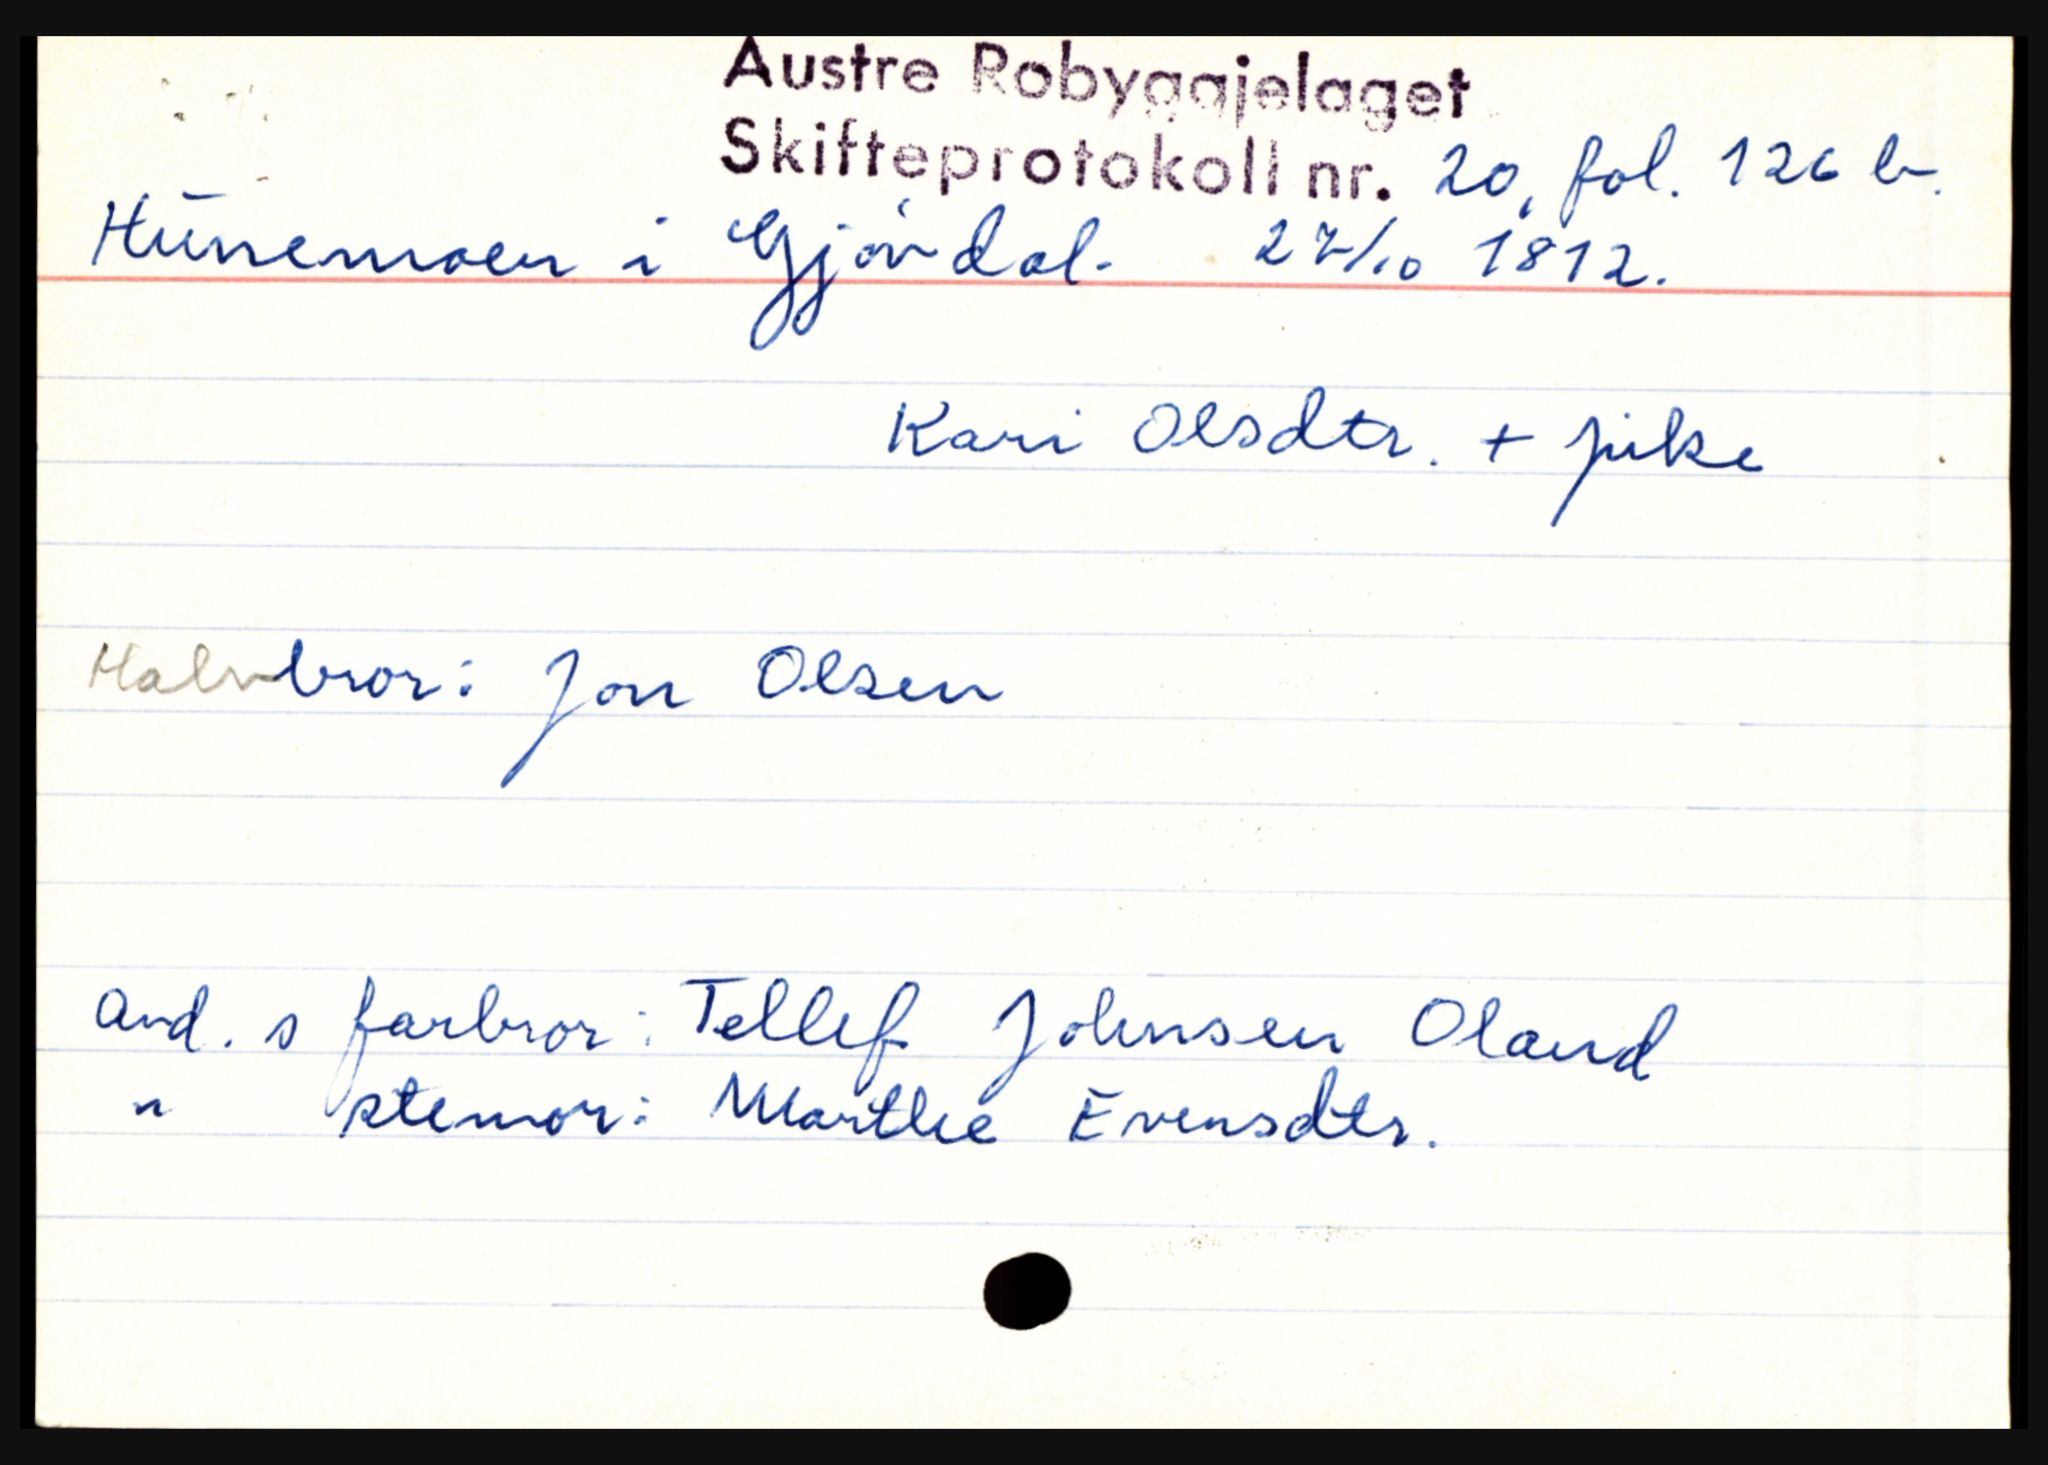 Austre Robyggjelaget
Skifteprotokoll nr. 20, fol. 126 b.
Hunemoen i Gjøvdal. 27/10 1812.
Kari Olsdtr. + pike
Halvbror: Jon Olsen
Avd. s farbror: Tellef Johnsen Oland
" stemor: Marthe Evensdtr.